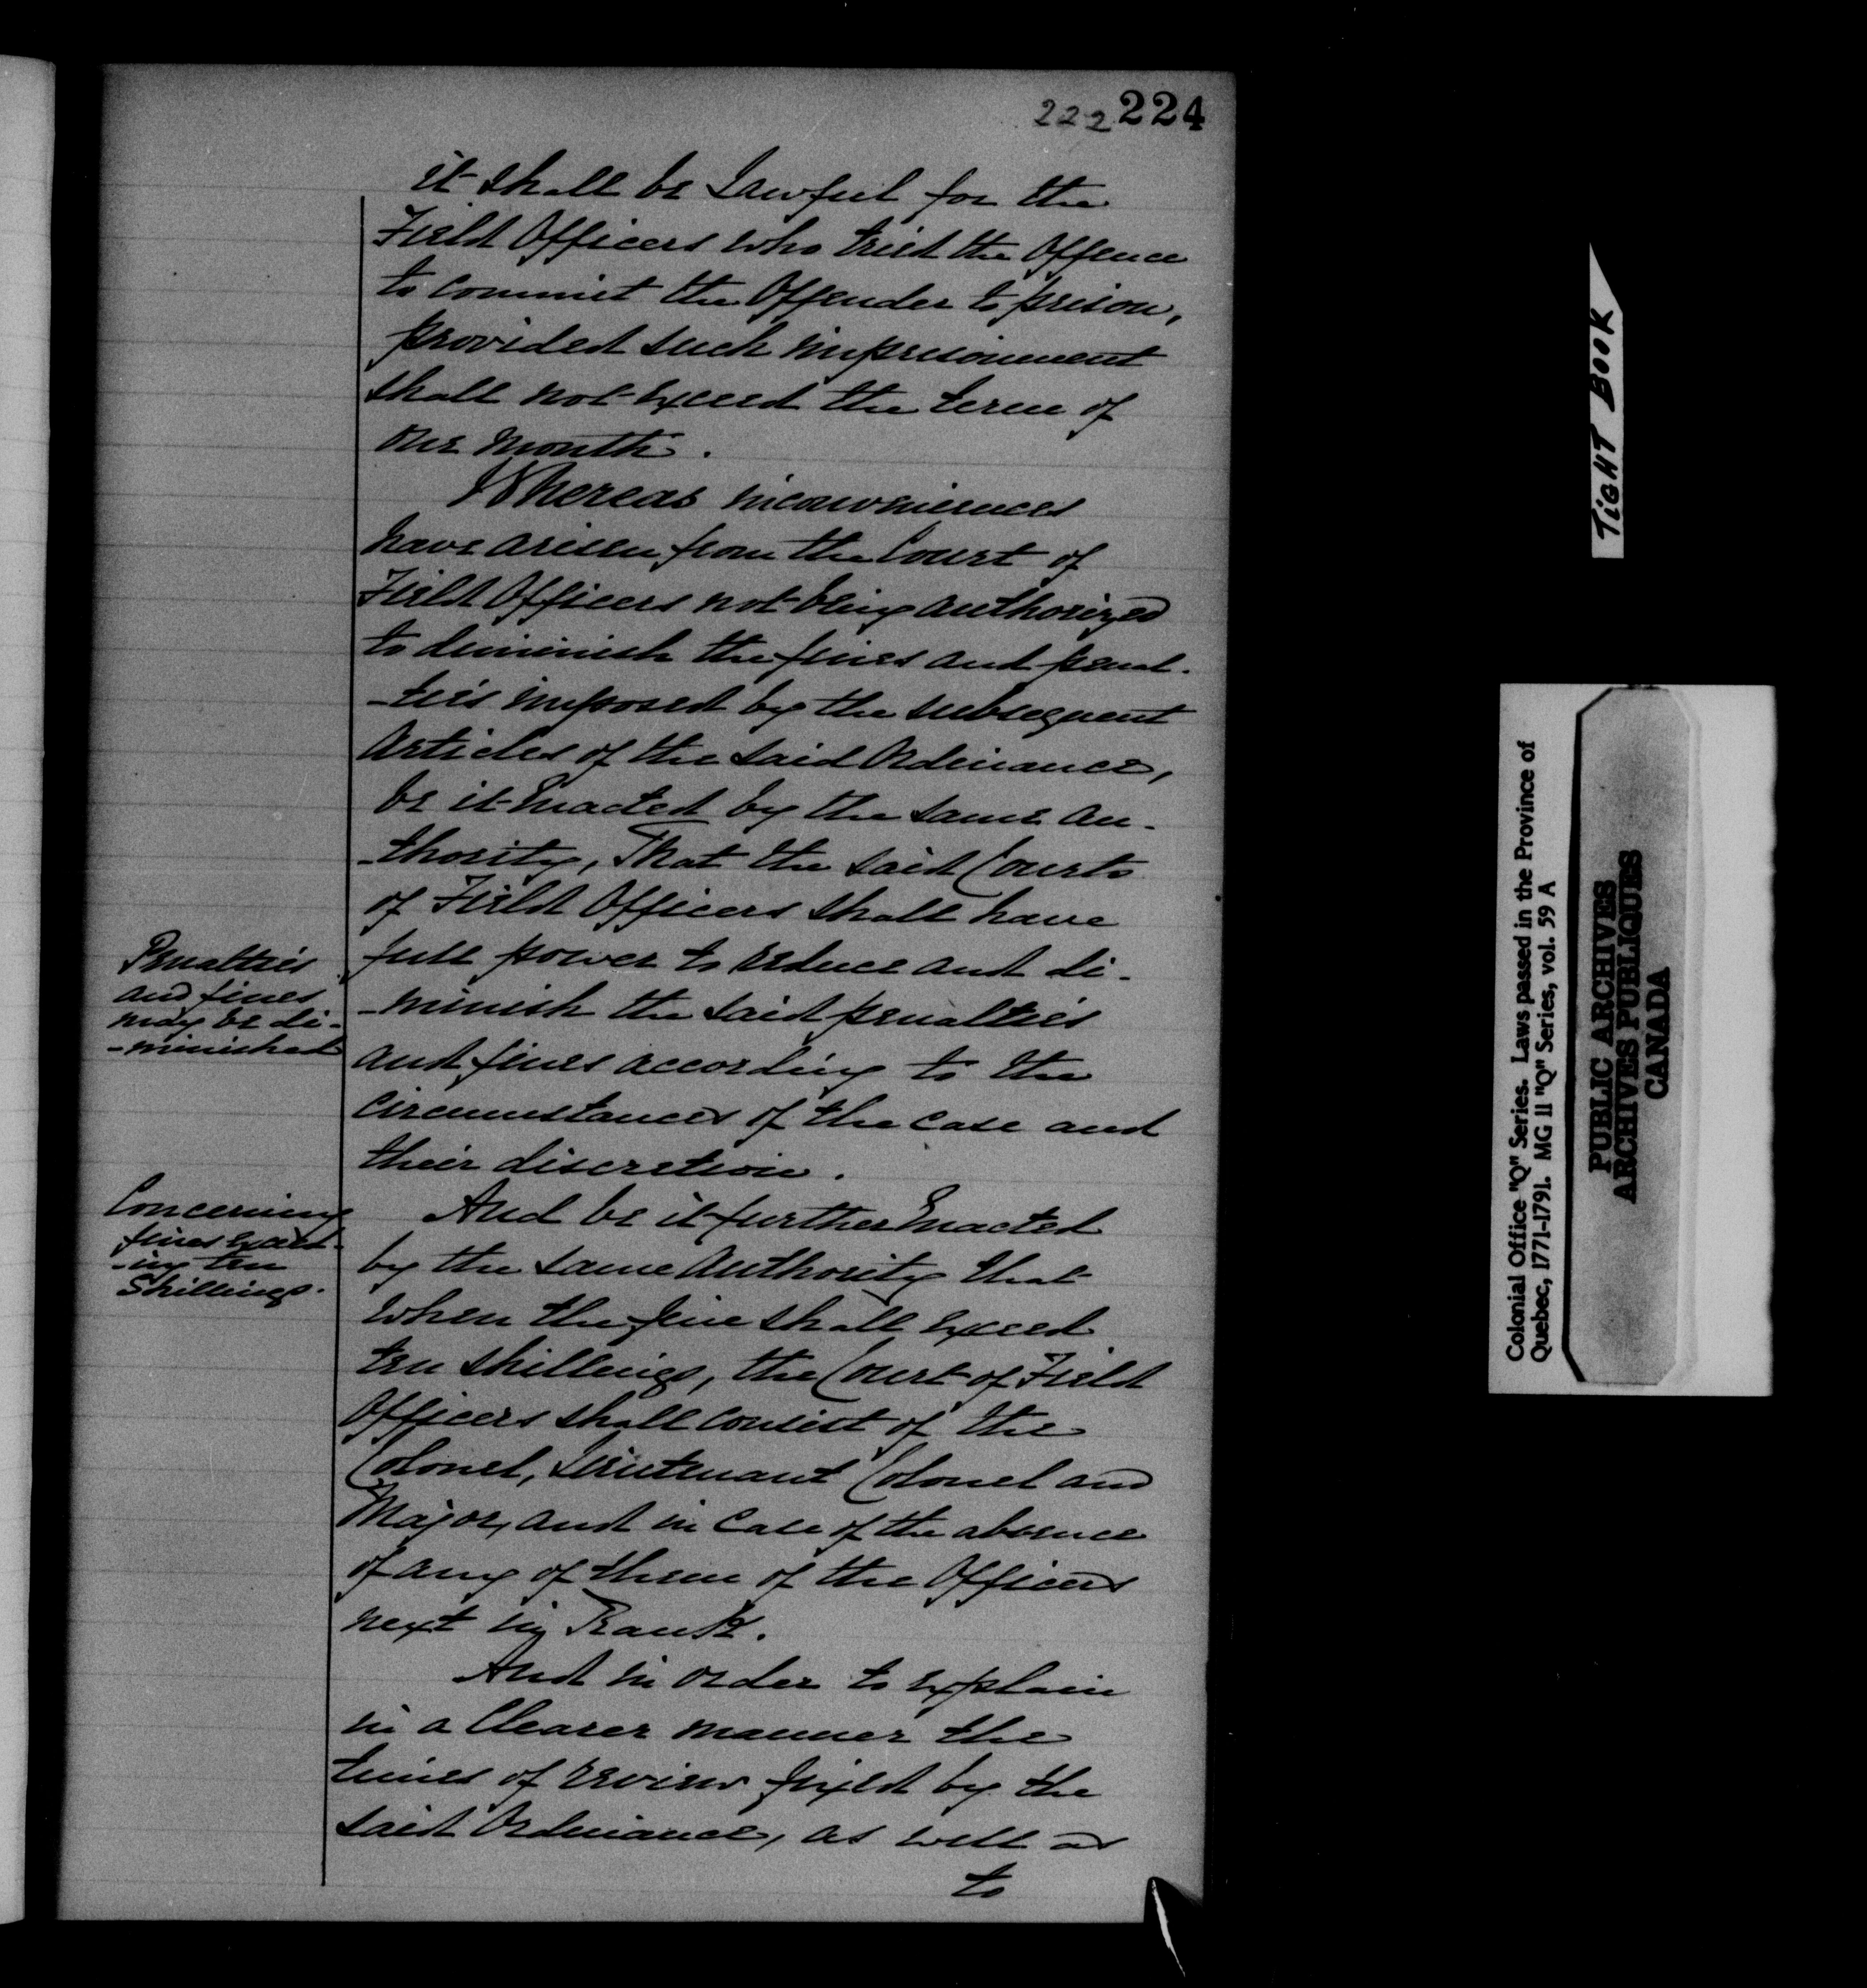 222 224
it shall be Lawful for the
Field Officers who tried the Offence
to commit the Offender to prison,
provided such imprisonment
shall not exceed the term of
one month.
Whereas inconveniences
have arisen from the Court of
Field Officers not being authorized
to diminish the fines and penal-
-ties imposed by the subsequent
Articles of the said Ordinance,
be it Enacted by the same au-
-thority, That the said Courts
of Field Officers shall have
full power to reduce and di-
-minish the said penalties
and fines according to the
circumstances of the case and
their discretion.
Penalties
and fines
may be di-
-minished
And be it further Enacted
by the same Authority that
when the fine shall exceed
ten shillings, the Court of Field
Officers shall consist of the
Colonel, Lieutenant Colonel and
Major, and in Case of the absence
of any of them of the Officers
next in Rank.
Concerning
fines exceed-
-ing ten
Shillings.
And in order to explain
in a Clearer manner the
times of review fixed by the
said Ordinance, as well as
to
TIGHT BOOK
Colonial Office "Q" Series. Laws passed in the Province of
Quebec, 1771-1791. MG 11 "Q" Series, vol. 59 A
PUBLIC ARCHIVES
ARCHIVES PUBLIQUES
CANADA